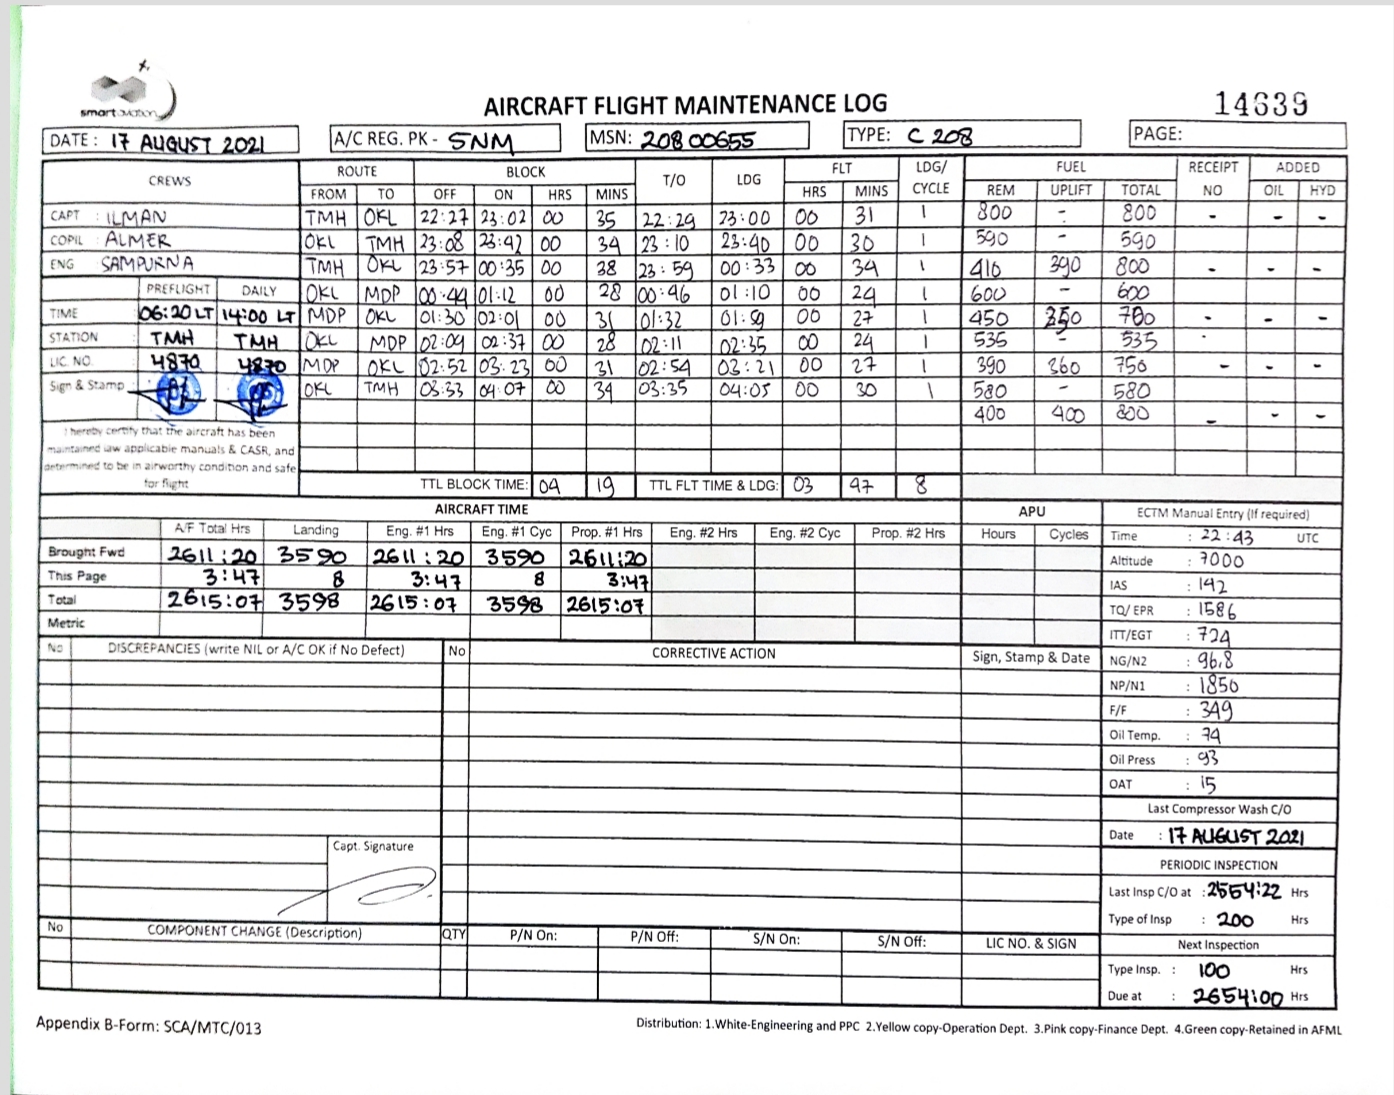 smart aviation
AIRCRAFT FLIGHT MAINTENANCE LOG
14639
DATE : 17 AUGUST 2021 A/C REG. PK - SNM MSN: 20800655 TYPE: C 208 PAGE:
CREWS ROUTE BLOCK T/O LDG FLT LDG/ CYCLE FUEL RECEIPT NO ADDED
FROM TO OFF ON HRS MINS HRS MINS REM UPLIFT TOTAL OIL HYD
CAPT : ILMAN TMH OKL 22:27 23:02 00 35 22:29 23:00 00 31 1 800 - 800 - - -
COPIL : ALMER OKL TMH 23:08 23:42 00 34 23:10 23:40 00 30 1 590 - 590
ENG SAMPURNA TMH OKL 23:57 00:35 00 38 23:59 00:33 00 34 1 410 390 800 - - -
PREFLIGHT DAILY OKL MDP 00:44 01:12 00 28 00:46 01:10 00 24 1 600 - 600
TIME 06:20 LT 14:00 LT MDP OKL 01:30 02:01 00 31 01:32 01:59 00 27 1 450 700 - - -
STATION TMH TMH OKL MDP 02:09 02:37 00 28 02:11 02:35 00 24 1 535 - 535
LIC. NO. 4870 4870 MDP OKL 02:52 03:23 00 31 02:54 03:21 00 27 1 390 360 750 - - -
Sign & Stamp OKL TMH 03:33 04:07 00 34 03:35 04:05 00 30 1 580 - 580
400 400 800 - - -
I hereby certify that the aircraft has been
maintained iaw applicable manuals & CASR, and
determined to be in airworthy condition and safe
for flight
TTL BLOCK TIME: 04 19 TTL FLT TIME & LDG: 03 47 8
AIRCRAFT TIME APU
A/F Total Hrs Landing Eng. #1 Hrs Eng. #1 Cyc Prop. #1 Hrs Eng. #2 Hrs Eng. #2 Cyc Prop. #2 Hrs Hours Cycles
Brought Fwd 2611:20 3590 2611:20 3590 2611:20
This Page 3:47 8 3:47 8 3:47
Total 2615:07 3598 2615:07 3598 2615:07
Metric
ECTM Manual Entry (If required)
Time : 22:43 UTC
Altitude : 7000
IAS : 142
TQ/ EPR : 1586
ITT/EGT : 724
NG/N2 : 96.8
NP/N1 : 1850
F/F : 349
Oil Temp. : 74
Oil Press : 93
OAT : 15
Last Compressor Wash C/O
Date : 17 AUGUST 2021
PERIODIC INSPECTION
Last Insp C/O at : 2554:22 Hrs
Type of Insp : 200 Hrs
Next Inspection
Type Insp. : 100 Hrs
Due at : 2654:00 Hrs
No DISCREPANCIES (write NIL or A/C OK if No Defect) No CORRECTIVE ACTION Sign, Stamp & Date
Capt. Signature
No COMPONENT CHANGE (Description) QTY P/N On: P/N Off: S/N On: S/N Off: LIC NO. & SIGN
Appendix B-Form: SCA/MTC/013
Distribution: 1.White-Engineering and PPC 2.Yellow copy-Operation Dept. 3.Pink copy-Finance Dept. 4.Green copy-Retained in AFML